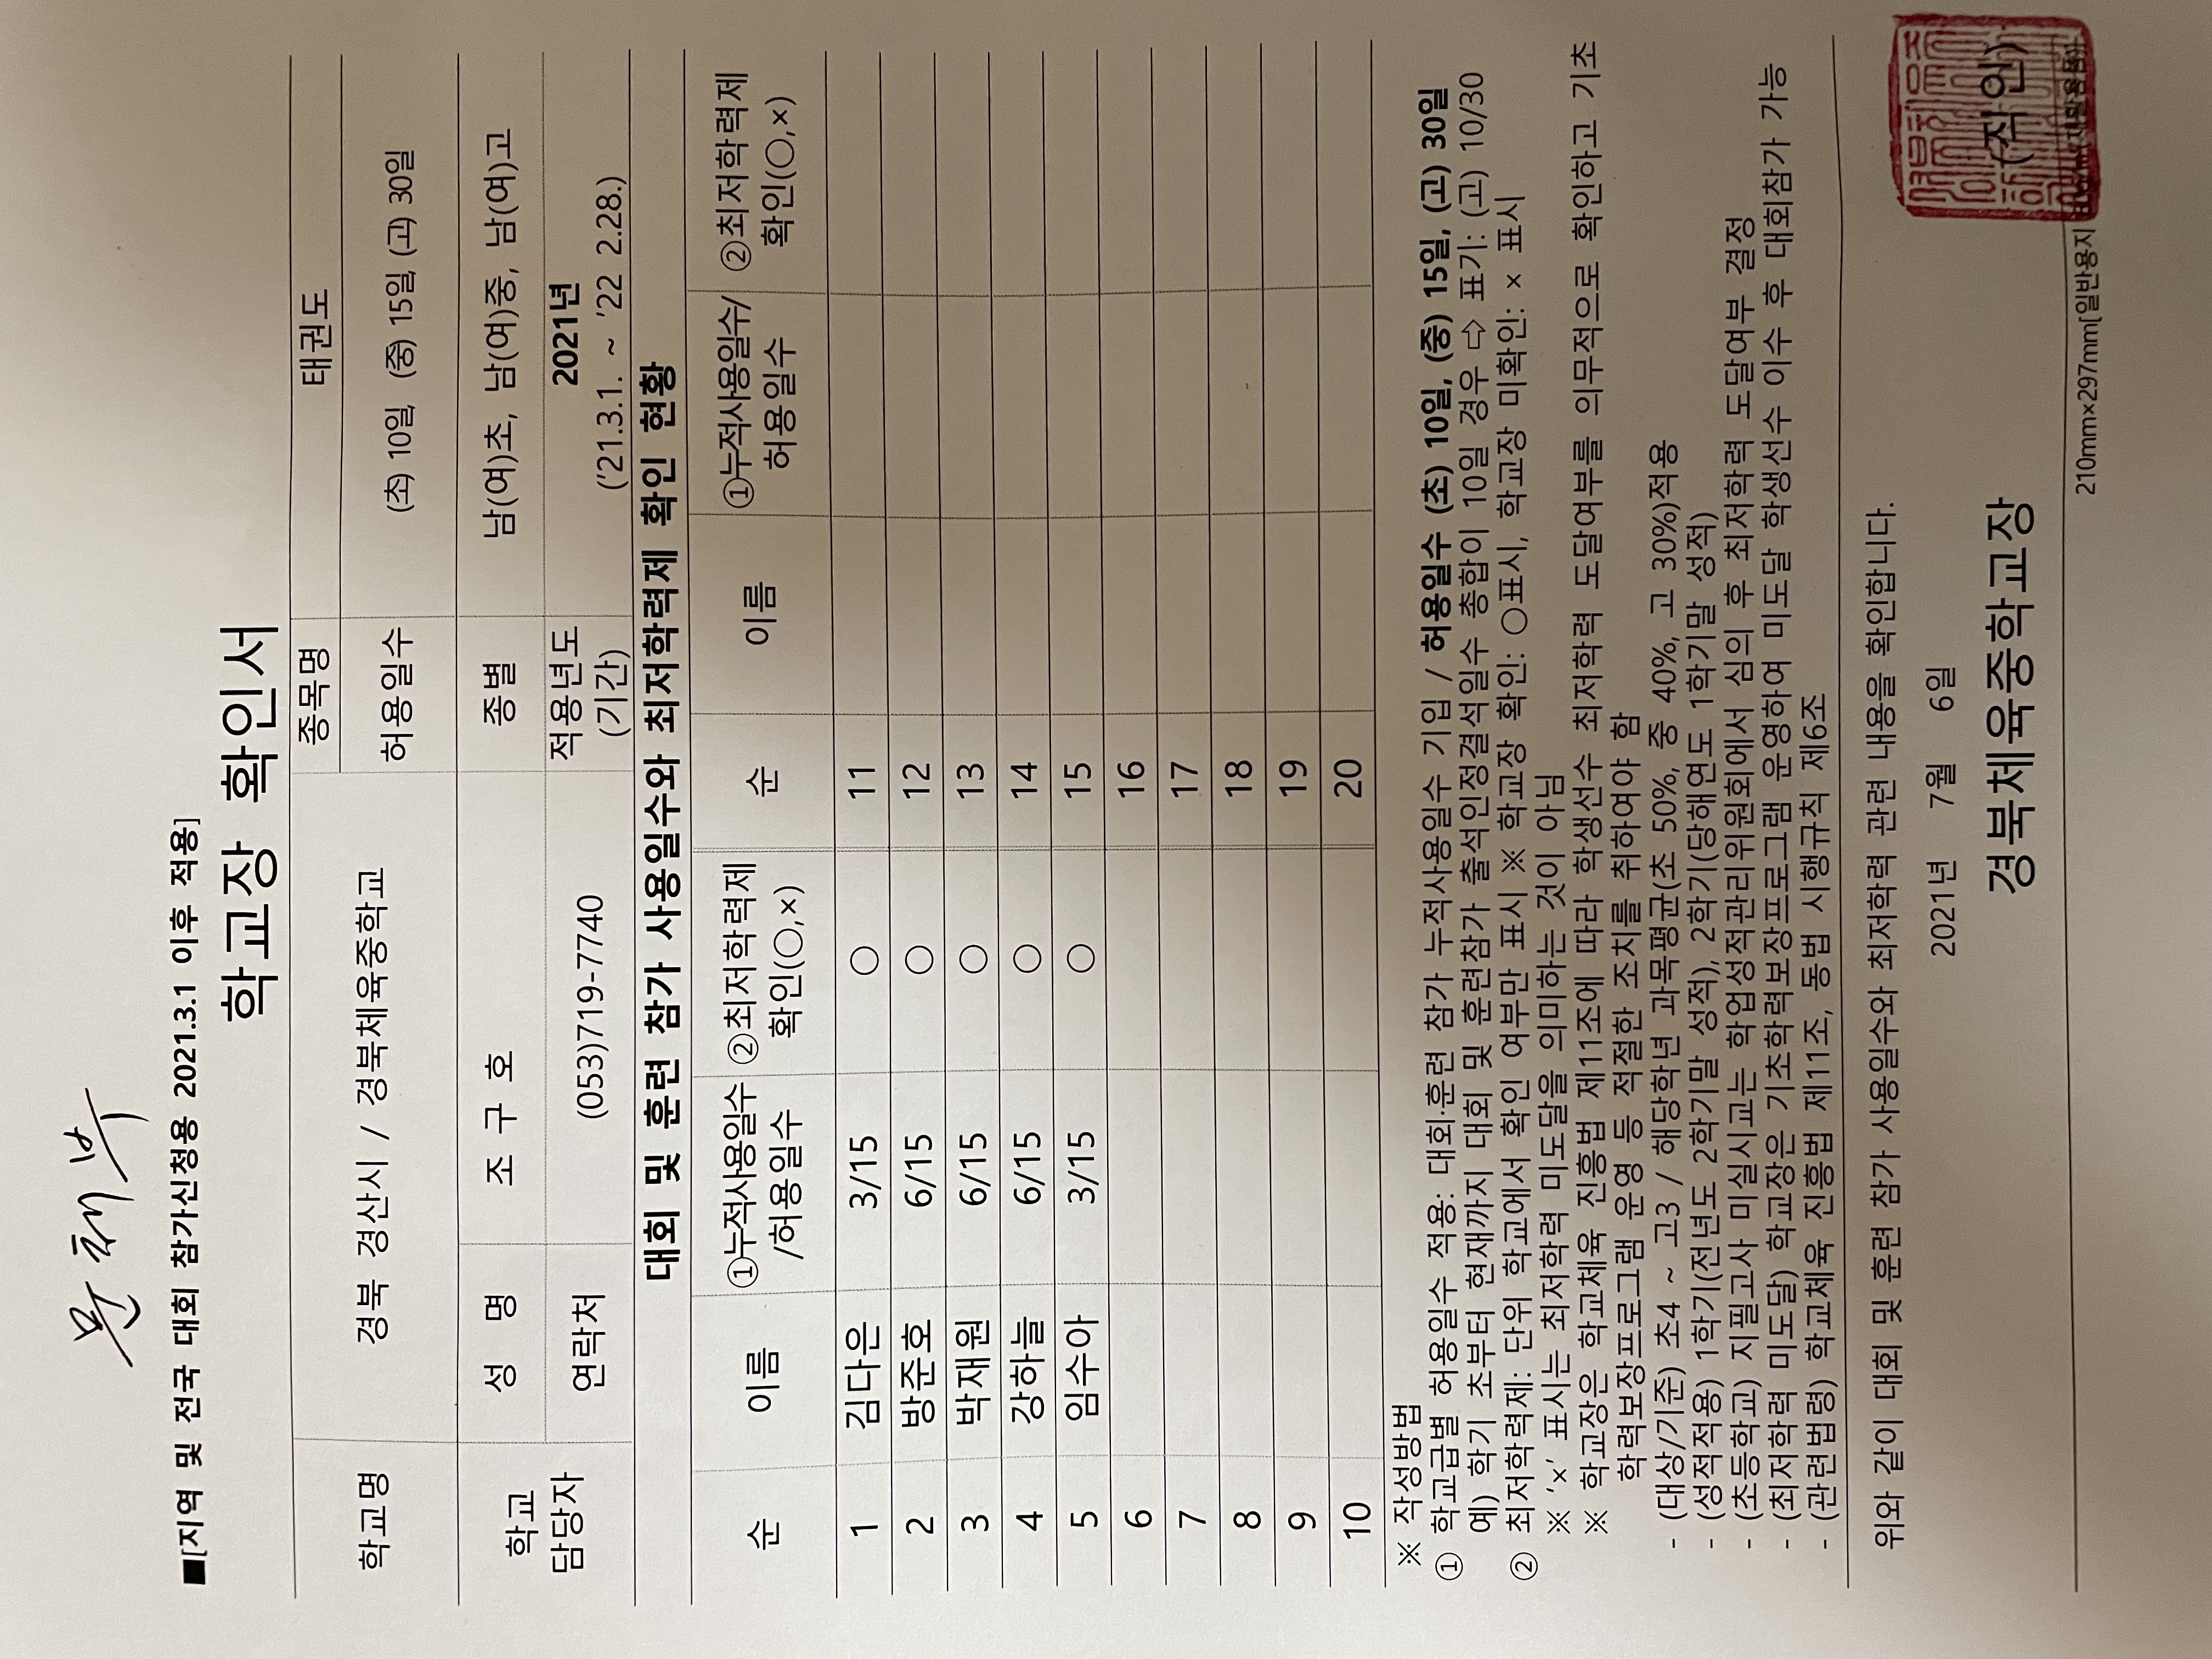 ■[지역 및 전국 대회 참가신청용 2021.3.1 이후 적용]
학교장 확인서
학교명 경북 경산시 / 경북체육중학교 종목명 태권도
허용일수 (초) 10일, (중) 15일, (고) 30일
학교 담당자 성 명 조 구 호 종별 남(여)초, 남(여)중, 남(여)고
연락처 (053)719-7740 적용년도 (기간) 2021년 ('21.3.1. ~ '22 2.28.)
대회 및 훈련 참가 사용일수와 최저학력제 확인 현황
순 이름 ①누적사용일수 /허용일수 ②최저학력제 확인(○,×) 순 이름 ①누적사용일수/ 허용일수 ②최저학력제 확인(○,×)
1 김다은 3/15 ○ 11
2 방준호 6/15 ○ 12
3 박재원 6/15 ○ 13
4 강하늘 6/15 ○ 14
5 임수아 3/15 ○ 15
6 16
7 17
8 18
9 19
10 20
※ 작성방법
① 학교급별 허용일수 적용: 대회·훈련 참가 누적사용일수 기입 / 허용일수 (초) 10일, (중) 15일, (고) 30일
예) 학기 초부터 현재까지 대회 및 훈련참가 출석인정결석일수 총합이 10일 경우 ⇨ 표기: (고) 10/30
② 최저학력제: 단위 학교에서 확인 여부만 표시 ※ 학교장 확인: ○표시, 학교장 미확인: × 표시
※ '×' 표시는 최저학력 미도달을 의미하는 것이 아님
※ 학교장은 학교체육 진흥법 제11조에 따라 학생선수 최저학력 도달여부를 의무적으로 확인하고 기초
학력보장프로그램 운영 등 적절한 조치를 취하여야 함
- (대상/기준) 초4 ~ 고3 / 해당학년 과목평균(초 50%, 중 40%, 고 30%)적용
- (성적적용) 1학기(전년도 2학기말 성적), 2학기(당해연도 1학기말 성적)
- (초등학교) 지필고사 미실시교는 학업성적관리위원회에서 심의 후 최저학력 도달여부 결정
- (최저학력 미도달) 학교장은 기초학력보장프로그램 운영하여 미도달 학생선수 이수 후 대회참가 가능
- (관련법령) 학교체육 진흥법 제11조, 동법 시행규칙 제6조
위와 같이 대회 및 훈련 참가 사용일수와 최저학력 관련 내용을 확인합니다.
2021년 7월 6일
경북체육중학교장 (직인)
210mm×297mm[일반용지